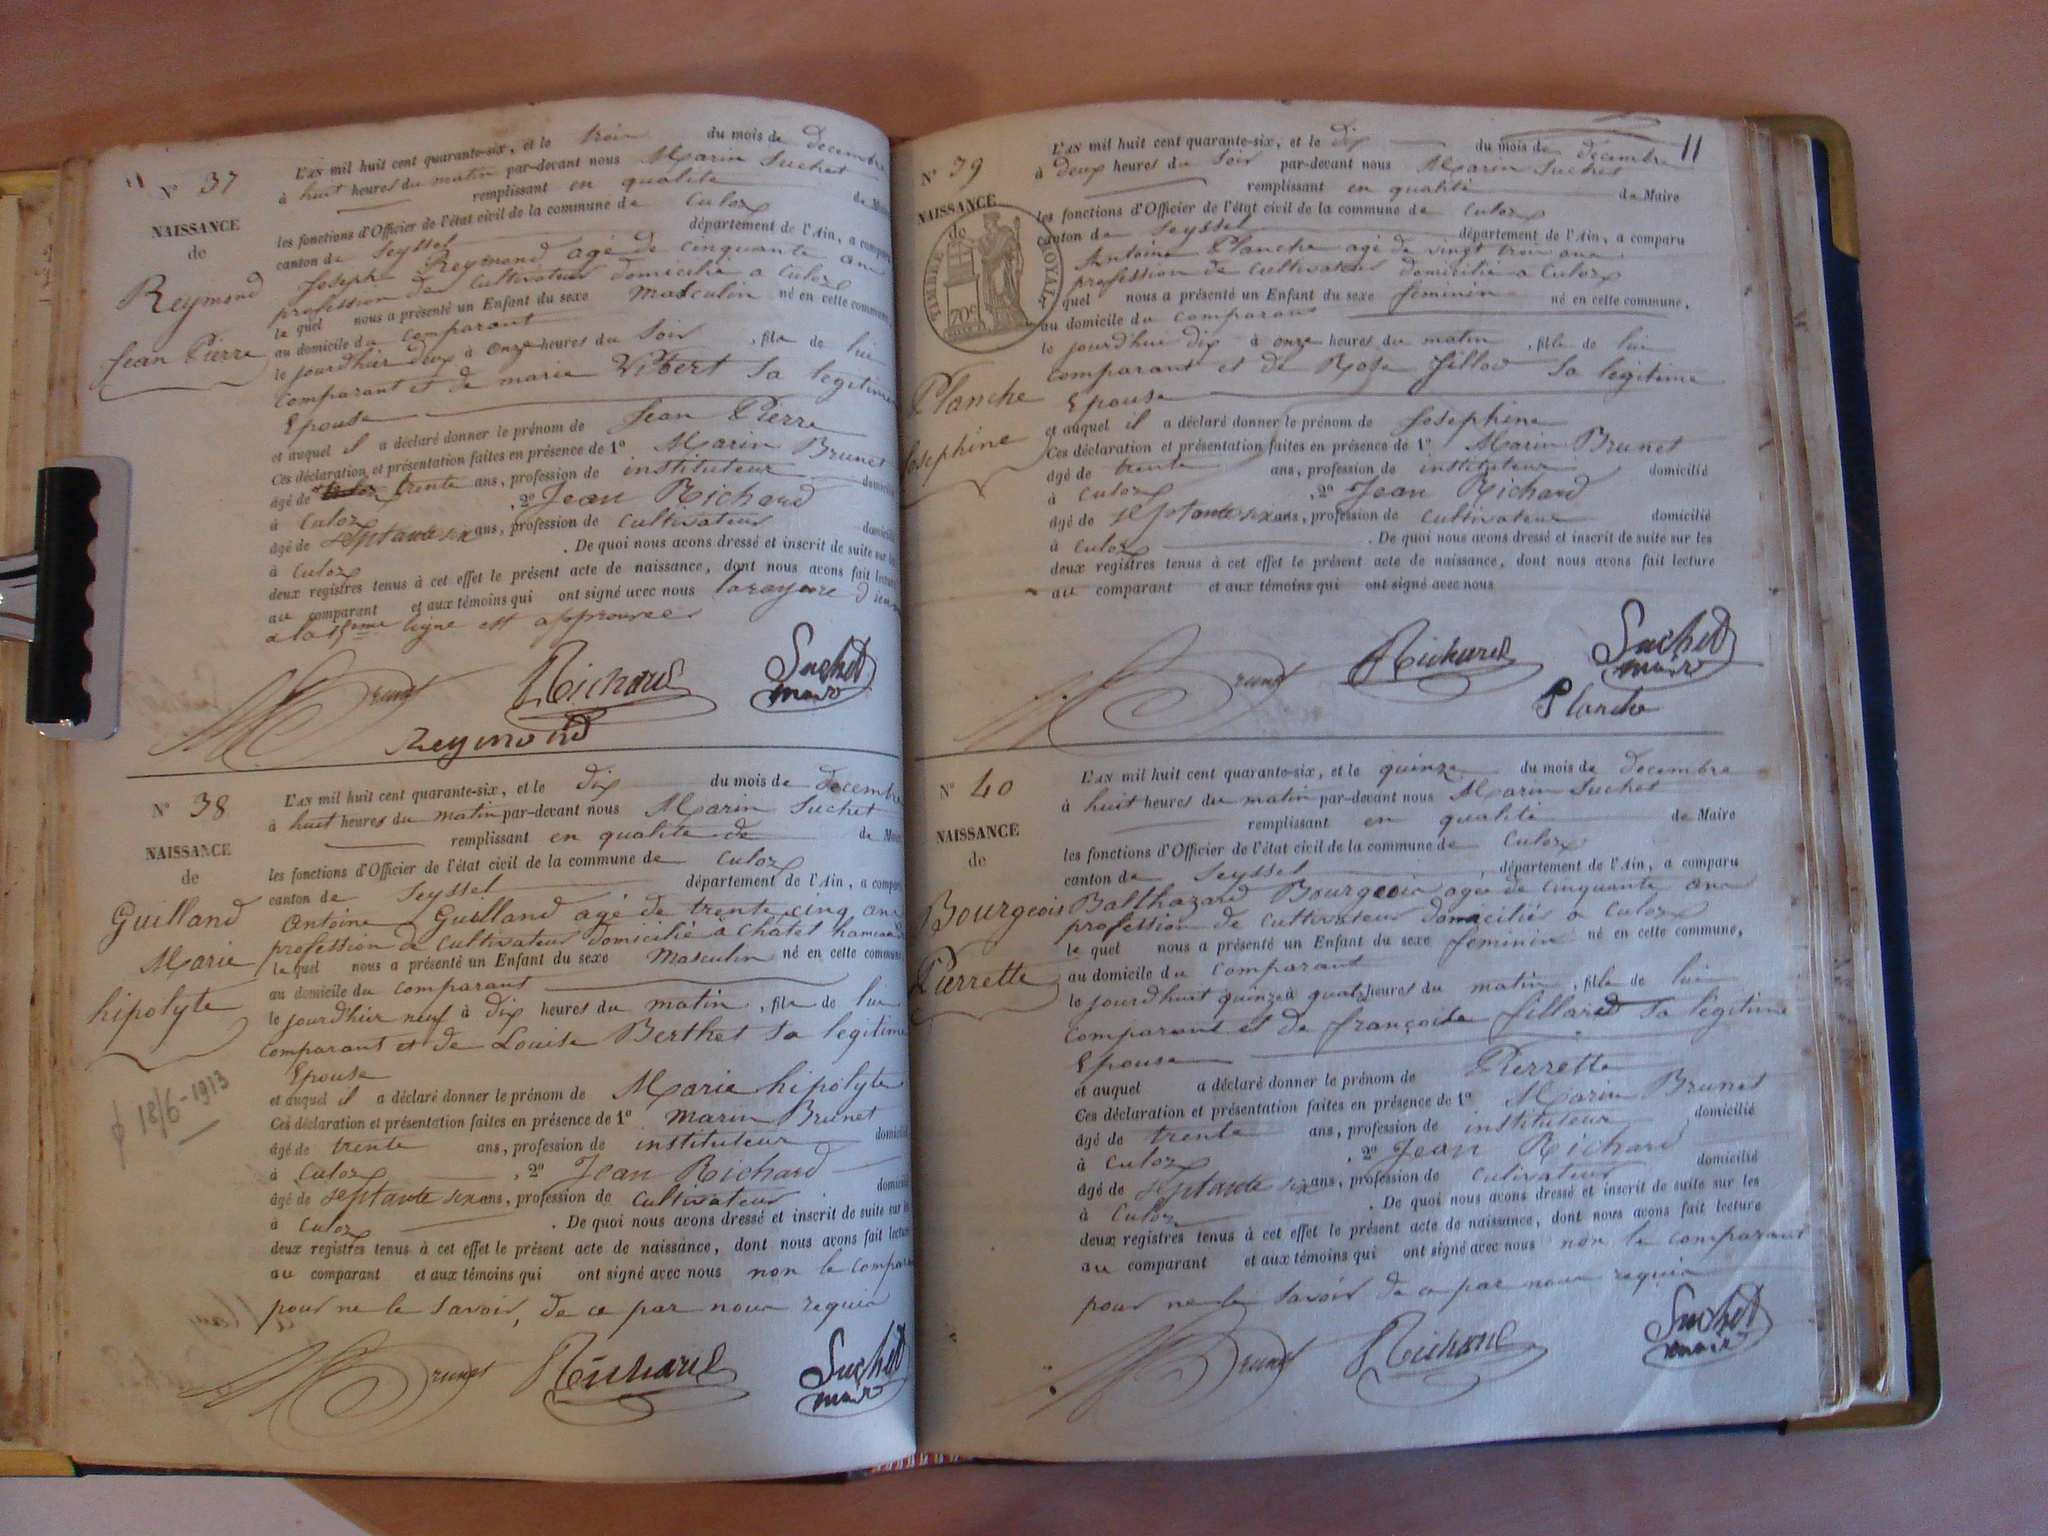 N° 37
NAISSANCE
de
Reymond
Jean Pierre
L'AN mil huit cent quarante-six, et le trois du mois de decembre
à huit heures du matin par-devant nous Marin Suchet
remplissant en qualité de Maire
les fonctions d'Officier de l'état civil de la commune de Culoz
canton de Seyssel département de l'Ain, a comparu
Joseph Reymond agé de cinquante ans
profession de Cultivateur domicilié a Culoz
le quel nous a présenté un Enfant du sexe masculin né en cette commune,
au domicile du comparant
le jourdhier deux à onze heures du soir, fils de lui
comparant et de marie Vibert sa legitime
Epouse
et auquel il a déclaré donner le prénom de Jean Pierre
Ces déclaration et présentation faites en présence de 1° Marin Brunet
âgé de trente ans, profession de instituteur domicilié
à Culoz, 2° Jean Richard
âgé de septante six ans, profession de cultivateur domicilié
à Culoz. De quoi nous avons dressé et inscrit de suite sur les
deux registres tenus à cet effet le présent acte de naissance, dont nous avons fait lecture
au comparant et aux témoins qui ont signé avec nous la rayure
a la 15eme ligne est approuvee
Brunet Richard Suchet
maire
Reymond
N° 38
NAISSANCE
de
Guilland
Marie
hipolyte
18/6-1913
L'AN mil huit cent quarante-six, et le dix du mois de decembre
à huit heures du matin par-devant nous Marin Suchet
remplissant en qualité de de Maire
les fonctions d'Officier de l'état civil de la commune de Culoz
canton de Seyssel département de l'Ain, a comparu
Antoine Guilland agé de trente cinq ans
profession de Cultivateur domicilié à Châtel hameau
le quel nous a présenté un Enfant du sexe masculin né en cette commune
au domicile du comparant
le jourdhier neuf à dix heures du matin, fils de lui
comparant et de Louise Berthet sa legitime
Epouse
et auquel il a déclaré donner le prénom de Marie hipolyte
Ces déclaration et présentation faites en présence de 1° Marin Brunet
âgé de trente ans, profession de instituteur domicilié
à Culoz, 2° Jean Richard
âgé de septante six ans, profession de cultivateur domicilié
à Culoz. De quoi nous avons dressé et inscrit de suite sur les
deux registres tenus à cet effet le présent acte de naissance, dont nous avons fait lecture
au comparant et aux témoins qui ont signé avec nous non le comparant
pour ne le savoir, de ce par nous requis
Brunet Richard Suchet
maire
11
N° 39
NAISSANCE
de
TIMBRE ROYAL
70c
Planche
Josephine
L'AN mil huit cent quarante-six, et le dix du mois de decembre
à deux heures du soir par-devant nous Marin Suchet
remplissant en qualité de Maire
les fonctions d'Officier de l'état civil de la commune de Culoz
canton de Seyssel département de l'Ain, a comparu
Antoine Planche agé de vingt trois ans
profession de Cultivateur domicilié a Culoz
quel nous a présenté un Enfant du sexe feminin né en cette commune,
au domicile du comparant
le jourdhui dix à onze heures du matin, fille de lui
comparant et de Rose fillod sa legitime
Epouse
et auquel il a déclaré donner le prénom de Josephine
Ces déclaration et présentation faites en présence de 1° Marin Brunet
âgé de trente ans, profession de instituteur domicilié
à Culoz, 2° Jean Richard
âgé de septante six ans, profession de cultivateur domicilié
à Culoz. De quoi nous avons dressé et inscrit de suite sur les
deux registres tenus à cet effet le présent acte de naissance, dont nous avons fait lecture
au comparant et aux témoins qui ont signé avec nous
Brunet Richard Suchet
maire
Planche
N° 40
NAISSANCE
de
Bourgeois
Pierrette
L'AN mil huit cent quarante-six, et le quinze du mois de decembre
à huit heures du matin par-devant nous Marin Suchet
remplissant en qualité de Maire
les fonctions d'Officier de l'état civil de la commune de Culoz
canton de Seyssel, département de l'Ain, a comparu
Balthazard Bourgeois agée de cinquante ans
profession de cultivateur domiciliés a Culoz
le quel nous a présenté un Enfant du sexe feminin né en cette commune,
au domicile du comparant
le jourdhuit quinze à quatre heures du matin, fille de lui
comparant et de françoise fillard sa legitime
Epouse
et auquel a déclaré donner le prénom de Pierrette
Ces déclaration et présentation faites en présence de 1° Marin Brunet
âgé de trente ans, profession de instituteur domicilié
à Culoz, 2° Jean Richard
âgé de septante six ans, profession de Cultivateur domicilié
à Culoz. De quoi nous avons dressé et inscrit de suite sur les
deux registres tenus à cet effet le présent acte de naissance, dont nous avons fait lecture
au comparant et aux témoins qui ont signé avec nous non le comparant
pour ne le savoir de ce par nous requis
Brunet Richard Suchet
maire